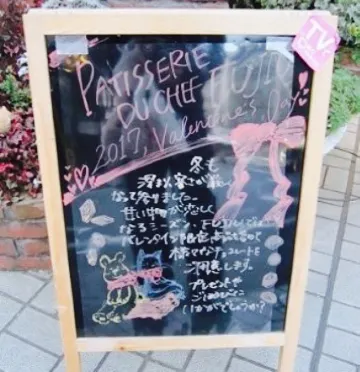 PATISSERIE
DU CHEF FUJIU
2017, Valentine's Day
冬も
深まり寒さが厳しく
なって参りました。
甘い物が恋しく
なるシーズン、FUJIUでは
バレンタイン限定商品を含めて
様々なチョコレートを
ご用意します。
プレゼントや
ごほうびに
いかがでしょうか?
TV